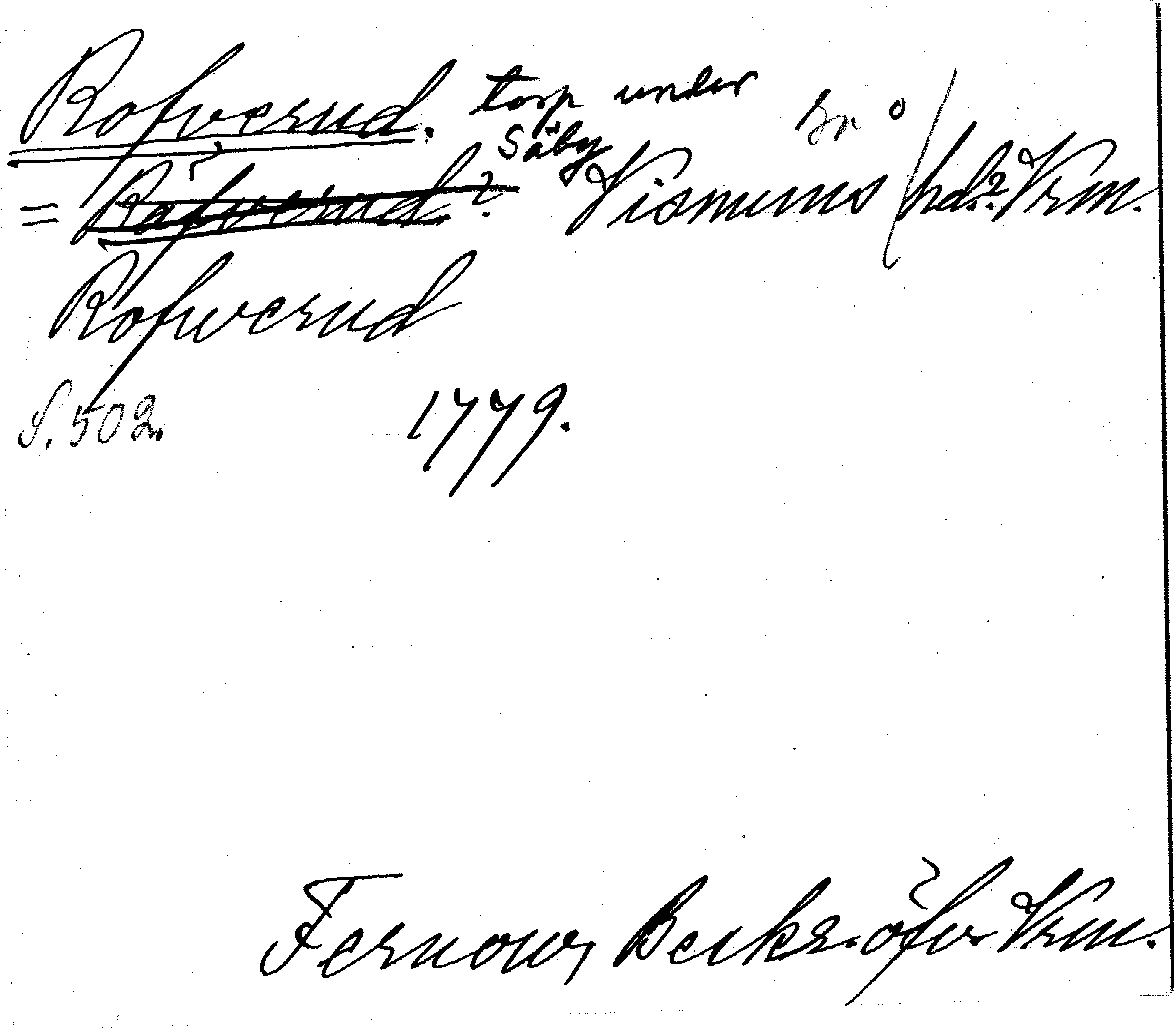 Rofverud. torp under
Säby
= Rofverud? Visnums hd.? Vrm.
Rofverud
S. 502. 1779.
Fernow, Beskr. öfv. Vrm.